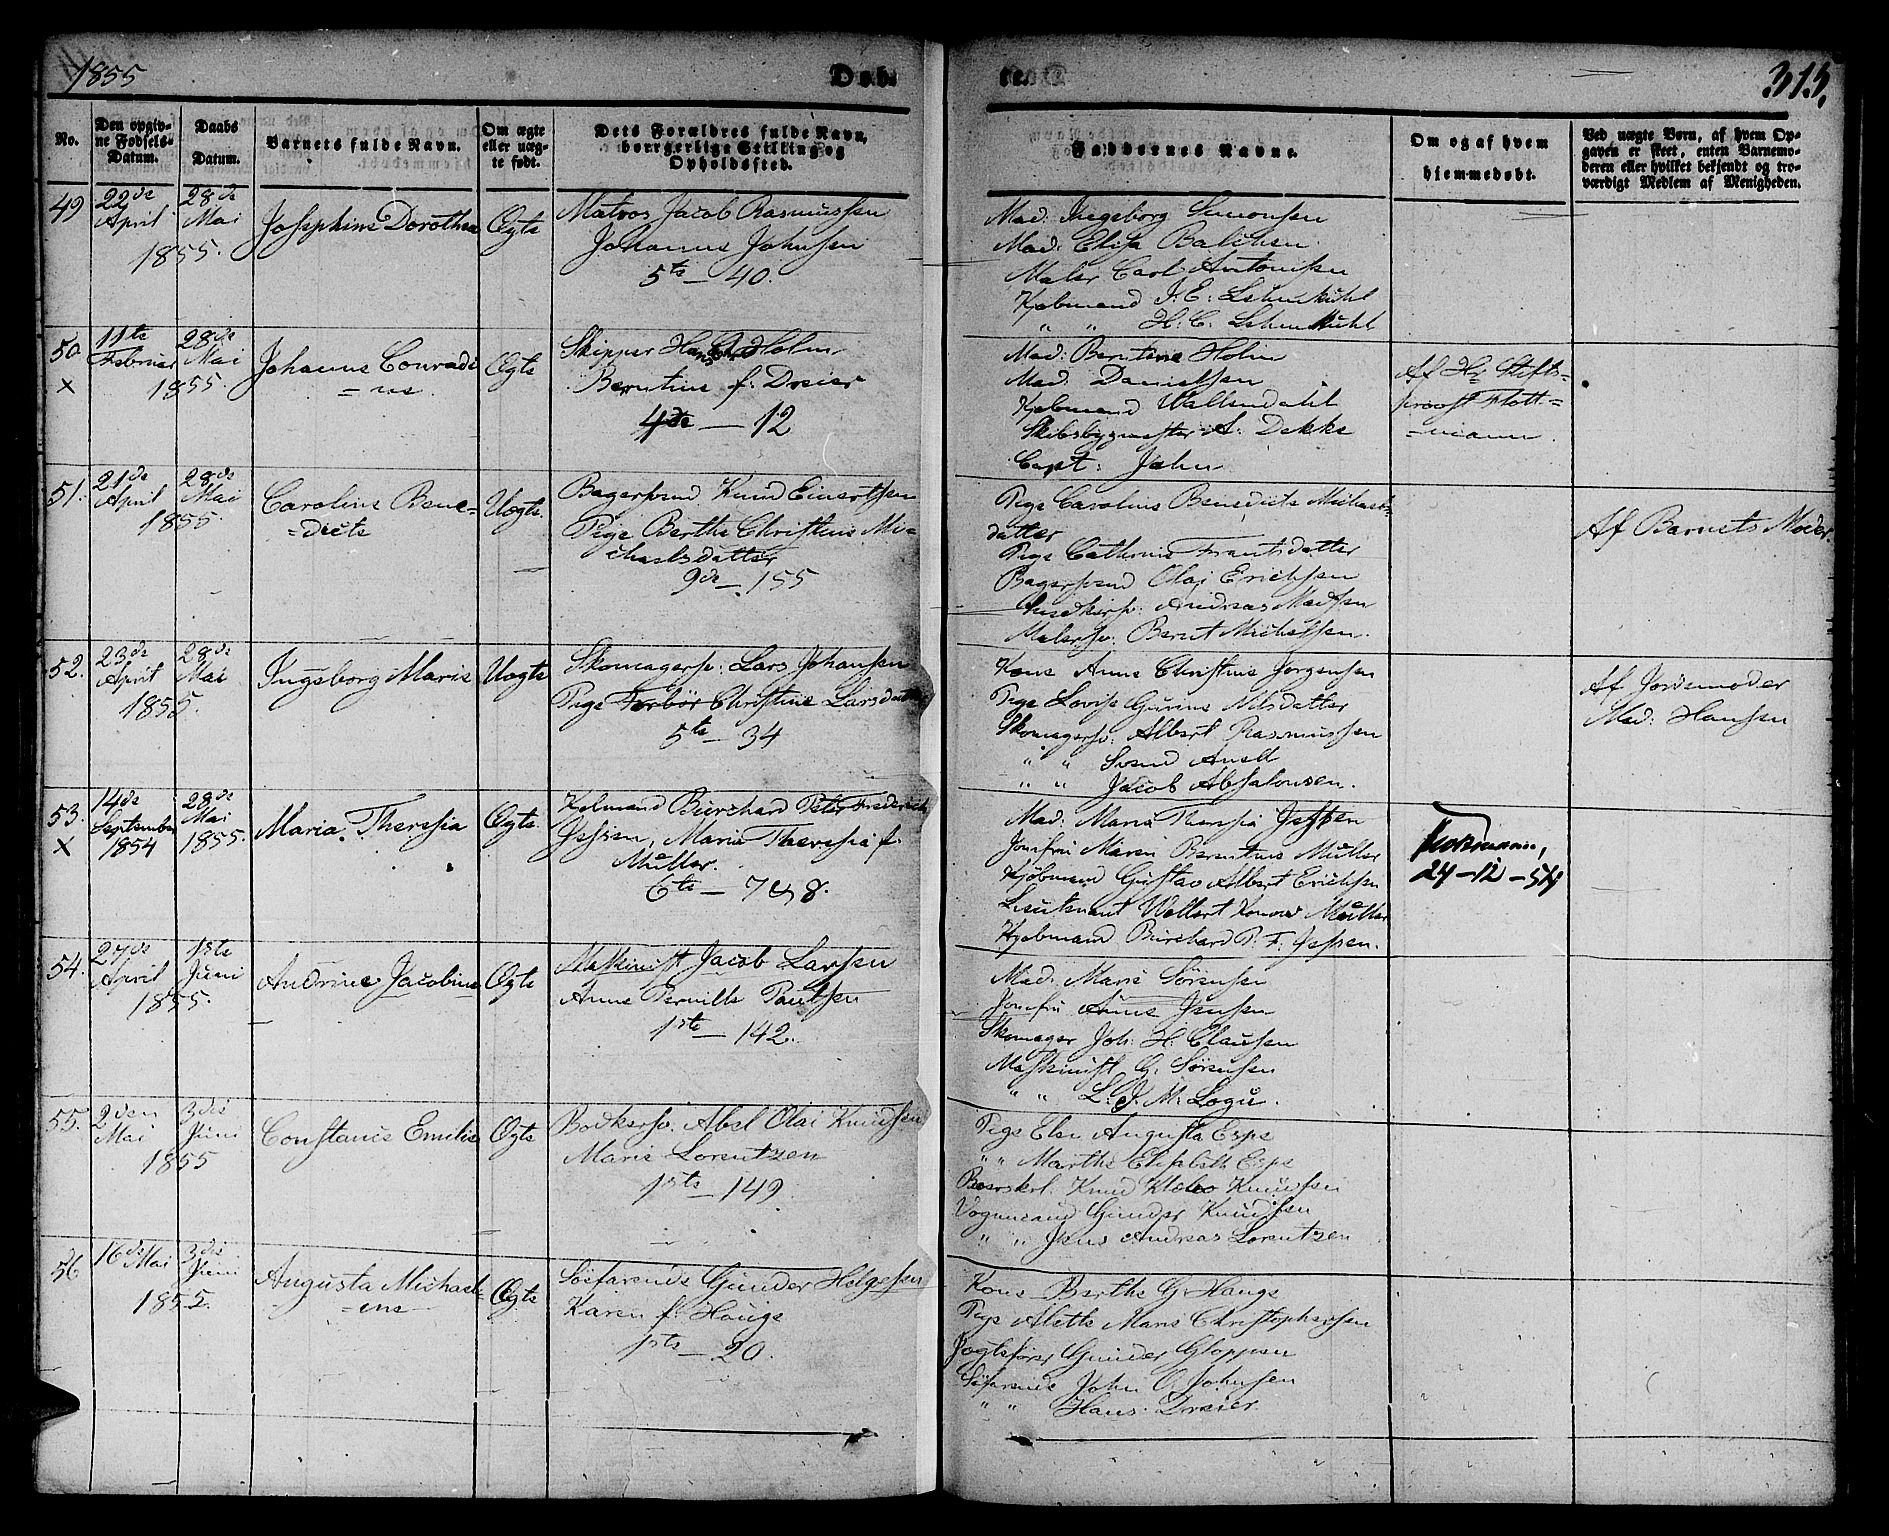 1855
Døb-
te.
315.
No.
Den opgiv-
ne Fødsels-
Datum.
Daabs
Datum.
Barnets fulde Navn.
Om ægte
eller uæg-
te født.
Dets Forældres fulde Navn,
borgerlige Stilling og
Opholdssted.
Faddernes Navne.
Om og af hvem
hjemmedøbt.
Ved uægte Børn, af hvem Op-
gaven er skeet, enten Barnemo-
deren eller hvilket bekjendt og tro-
værdigt Medlem af Menigheden.
49
22de
April
28de
Mai
1855.
Josephine Dorothea
Ægte
Matros Jacob Rasmussen
Johanne Johnsen
5te — 40.
Mad: Ingeborg Simonsen
Mad: Elisa Balchen.
Maler Carl Antonisen
Kjøbmand J. E: Lehmkuhl
" " H: C: Lehmkuhl
50.
x
11te
Februar
28de
Mai
1855.
Johanne Conradi
= ne
Ægte
Skipper Holm
Berntine f: Dreier
4de — 12
Mad: Berntine Holm
Mad. Danielsen
Kjøbmand Wallendahl
Skibsbygmester A: Dekke
Capt: Jahn
Af Hr. Stifts-
provst Flott-
=mann.
51.
21de
April
28de
Mai
1855.
Caroline Bene-
=dicte
Uægte.
Bagersvend Knud Einertsen
Pige Berthe Christine Mi-
chaelsdatter
9de — 155
Pige Caroline Benedicte Michaels-
datter
Pige Cathrine Frantsdatter
Bagersvend Olaj Erichsen
Snedkersv: Andreas Madsen
Malersv: Bernt Michelsen.
Af Barnets Moder.
52.
23de
April
28de
Mai
1855.
Ingeborg Marie
Uægte
Skomagersv: Lars Johansen
Pige Torbør Christine Larsdatter
5te — 34
Kone Anne Christine Jørgensen
Pige Lovise Gurine Nilsdatter
Skomagersv. Albert Rasmussen
" " Svend
" " Jacob Absalonsen.
Af Jordemoder
Mad: Hansen
53.
x
14de
September
1854
28de
Mai
1855.
Maria Theresia
Ægte.
Kjøbmand Burchard Peter Frederich
Jessen, Maria Theresia f.
Müller.
6te — 7 & 8.
Mad. Maria Theresia Jessen
Jomfru Maren Berentine Müller
Kjøbmand Gustav Albert Erichsen
Lieutenant Wollert Konow Müller
Kjøbmand Burchard P. F. Jessen.
24-12-54
54.
27de
April
1ste
Juni
1855.
Andrine Jacobine
Ægte
Maskinist Jacob Larsen
Anne Pernille Paulsen
1ste — 142.
Mad: Marie Sørensen
Jomfru Anne Jensen
Skomager Joh: H. Clausen
Maskinist G. Sørensen
" " L. J. M. Logu.
55.
2den
Mai
3die
Juni
1855
Constance Emilie
Ægte
Bødkersv. Abel Olai Knudsen
Marie Lorentzen
1ste — 149
Pige Else Augusta Espe
" " Marthe Elisabeth Espe
Knud Knudsen
Vognmand Gunder Knudsen
" " Jens Andreas Lorentzen
56
16de Mai
3die
Juni
1855.
Augusta Michael-
=ine
Ægte
Søefarende Gunder Helgesen
Karen f: Hauge
1ste — 20.
Kone Berthe G. Hauge
Pige Alette Marie Christophersen
Gunder Gloppen
Søfarende John O. Johnsen
" " Hans Dreier.